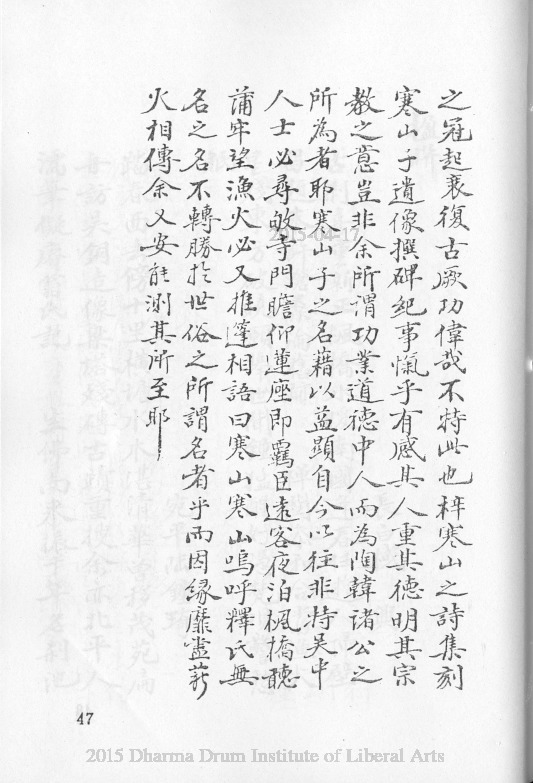 之冠起衰復古厥功偉哉不特此也梓寒山之詩集刻
寒山子遺像撰碑紀事愾乎有感其人重其德明其宗
教之意豈非余所謂功業道德中人而為陶韓諸公之
所為者耶寒山子之名藉以益顯自今以往非特吳中
人士必尋敂寺門瞻仰蓮座即羈臣遠客夜泊楓橋聽
蒲牢望漁火必又推篷相語曰寒山寒山嗚呼釋氏無
名之名不轉勝於世俗之所謂名者乎而因緣靡盡薪
火相傳余又安能測其所至耶
47
2015-04-17
2015 Dharma Drum Institute of Liberal Arts